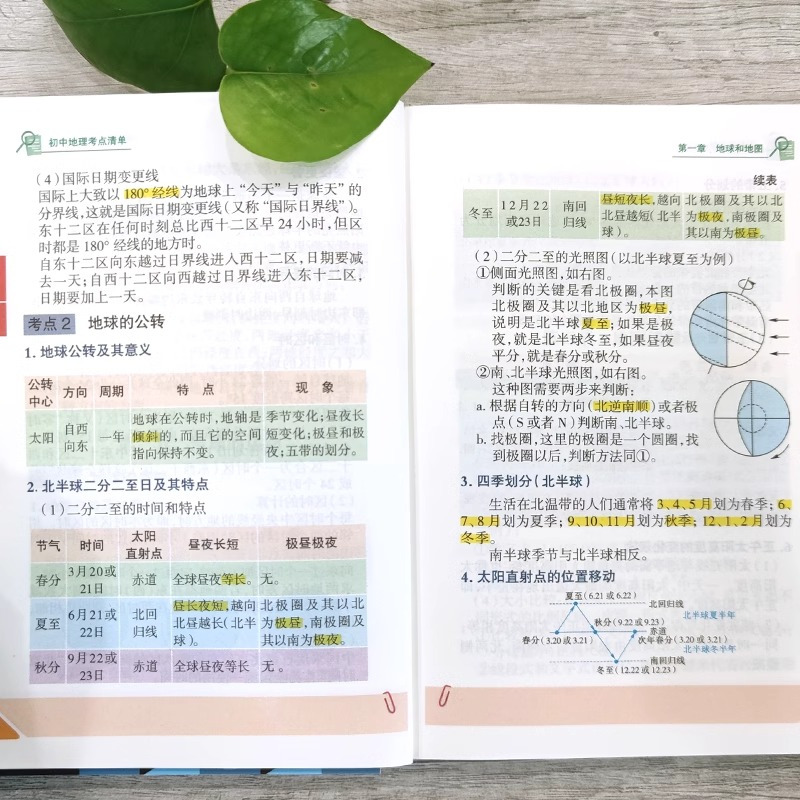 初中地理考点清单
(4)国际日期变更线
国际上大致以180°经线为地球上“今天”与“昨天”的
分界线,这就是国际日期变更线(又称“国际日界线”)。
东十二区在任何时刻总比西十二区早24小时,但区
时都是180°经线的地方时。
自东十二区向东越过日界线进入西十二区,日期要减
去一天;自西十二区向西越过日界线进入东十二区,
日期要加上一天。
考点2 地球的公转
1.地球公转及其意义
公转中心 方向 周期 特点 现象
太阳 自西向东 一年 地球在公转时,地轴是倾斜的,而且它的空间指向保持不变。 季节变化;昼夜长短变化;极昼和极夜;五带的划分。
2.北半球二分二至日及其特点
(1)二分二至的时间和特点
节气 时间 太阳直射点 昼夜长短 极昼极夜
春分 3月20或21日 赤道 全球昼夜等长。 无。
夏至 6月21或22日 北回归线 昼长夜短,越向北昼越长(北半球)。 北极圈及其以北为极昼,南极圈及其以南为极夜。
秋分 9月22或23日 赤道 全球昼夜等长 无。
第一章 地球和地图
续表
冬至 12月22或23日 南回归线 昼短夜长,越向北昼越短(北半球)。 北极圈及其以北为极夜,南极圈及其以南为极昼。
(2)二分二至的光照图(以北半球夏至为例)
①侧面光照图,如右图。
判断的关键是看北极圈,本图
北极圈及其以北地区为极昼,
说明是北半球夏至;如果是极
夜,就是北半球冬至,如果昼夜
平分,就是春分或秋分。
②南、北半球光照图,如右图。
这种图需要两步来判断:
a.根据自转的方向(北逆南顺)或者极
点(S或者N)判断南、北半球。
b.找极圈,这里的极圈是一个圆圈,找
到极圈以后,判断方法同①。
3.四季划分(北半球)
生活在北温带的人们通常将3、4、5月划为春季;6、
7、8月划为夏季;9、10、11月划为秋季;12、1、2月划为
冬季。
南半球季节与北半球相反。
4.太阳直射点的位置移动
夏至(6.21或6.22)
北回归线
北半球夏半年
秋分(9.22或9.23)
赤道
春分(3.20或3.21)
次年春分(3.20或3.21)
北半球冬半年
南回归线
冬至(12.22或12.23)